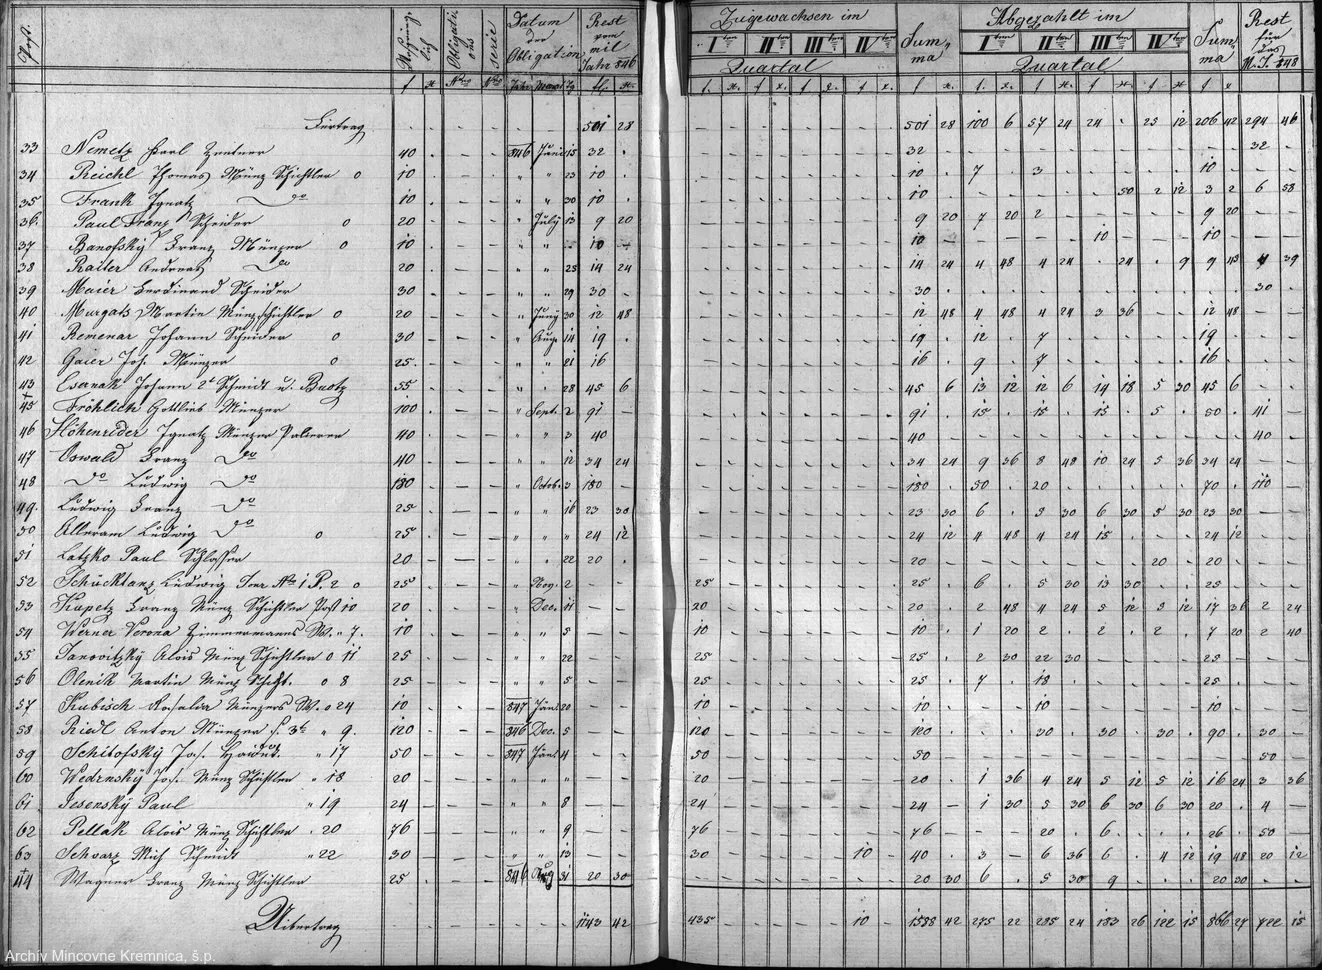 Post. Obligati ons Serie Datum der Obligation Rest vom mil. Jahr 846 Zugewachsen im Quartal Iten IIten IIIten IVten Summa Abgezahlt im Quartal Iten IIten IIIten IVten Summa Rest für das M. J. 848
f x Nro Nro Jahr Monat Tg fl. x. f. x. f x. f x. f x. f x. f. x. f x. f x f x f x
Fürtrag 501 28 501 28 100 6 57 24 24 . 25 12 206 42 294 46
33 Nemetz Karl Zentner 40 846 Jäner 15 32 . 32 32
34 Reichl Thomas Münz Schichtler o 10 " " 23 10 . 10 . 7 . 3 10
35 Frank Ignatz do 10 " " 30 10 . 10 50 2 12 3 2 6 58
36 Paul Franz Scheider o 20 " July 13 9 20 9 20 7 20 2 9 20
37 Banofsky Franz Münzer o 10 " " 10 — 10 — 10 10
38 Raiter Andreas do 20 " " 25 14 24 14 24 4 48 4 24 . 24 . 9 9 45 4 39
39 Maier Ferdinand Scheider 30 " " 29 30 . 30 30
40 Murgats Martin Münzschichtler o 20 " Juny 30 12 48 12 48 4 48 4 24 3 36 12 48
41 Remenar Johann Scheider o 30 " Aug. 14 19 . 19 . 12 . 7 19
42 Gaier Joh. Münzer o 25 " " 21 16 16 . 9 . 7 16
43 Csernak Johann 2t Schmidt u. Buotz 55 " " 28 45 6 45 6 13 12 12 6 14 18 5 30 45 6
45 Fröhlich Gottlieb Münzer 100 " Sept. 2 91 — 91 . 15 . 15 . 15 . 5 . 50 . 41 —
46 Höhenrider Ignatz Münzer Palierer 40 " " 3 40 40 40
47 Oswald Franz do 40 " " 12 34 24 34 24 9 36 8 48 10 24 5 36 34 24
48 do Ludwig do 180 " Octob. 3 180 180 . 50 . 20 70 . 110
49. Ludwig Franz do 25 " " 16 23 30 23 30 6 . 5 30 6 30 5 30 23 30
50 Alleram Ludwig do o 25 " " " 24 12 24 12 4 48 4 24 15 24 12
51 Latzko Paul Schlosser 20 " " 22 20 . 20 20 . 20
52 Schücktanz Ludwig Inr No 1 P. 2 o 25 " Nov. 2 25 25 . 6 . 5 30 13 30 25
53 Kapetz Franz Münz Schichtler Post 10 20 " Dec. 11 20 20 . 2 48 4 24 5 12 5 12 17 36 2 24
54 Werner Verona Zimmermanns W. " 7. 10 " " 5 10 10 . 1 20 2 . 2 . 2 . 7 20 2 40
55 Janovitzky Alois Münz Schichtler o 11 25 " " 22 25 25 . 2 30 22 30 25
56 Olenik Martin Münz Schcht. o 8 25 " " 5 25 25 . 7 . 18 25
57 Kubisch Rosalia Münzers W. o 24 10 847 Jän. 20 10 10 . 10 10
58 Riedl Anton Münzer " 9. 120 846 Dec. 5 120 120 30 . 30 . 30 . 90 . 30
59 Schitofsky Jos. " 17 50 847 Jän. 4 50 50 50
60 Wedrnsky Jos. Münz Schichtler " 18 20 " " " 20 20 1 36 4 24 5 12 5 12 16 24 3 36
61 Jesensky Paul " 19 24 " " 8 24 24 — 1 30 5 30 6 30 6 30 20 . 4 —
62 Pellak Alois Münz Schichtler . 20 76 " " 9 76 76 20 . 6 26 . 50
63 Schwarz Mich Schmidt " 22 30 " " 13 30 10 40 . 3 — 6 36 6 . 4 12 19 48 20 12
44 Wagner Franz Münz Schichtler 25 846 Aug 31 20 30 20 30 6 . 5 30 9 20 30
Uibertrag 1143 42 435 10 1588 42 275 22 285 24 183 26 122 15 866 27 722 15
Archív Mincovne Kremnica, š.p.